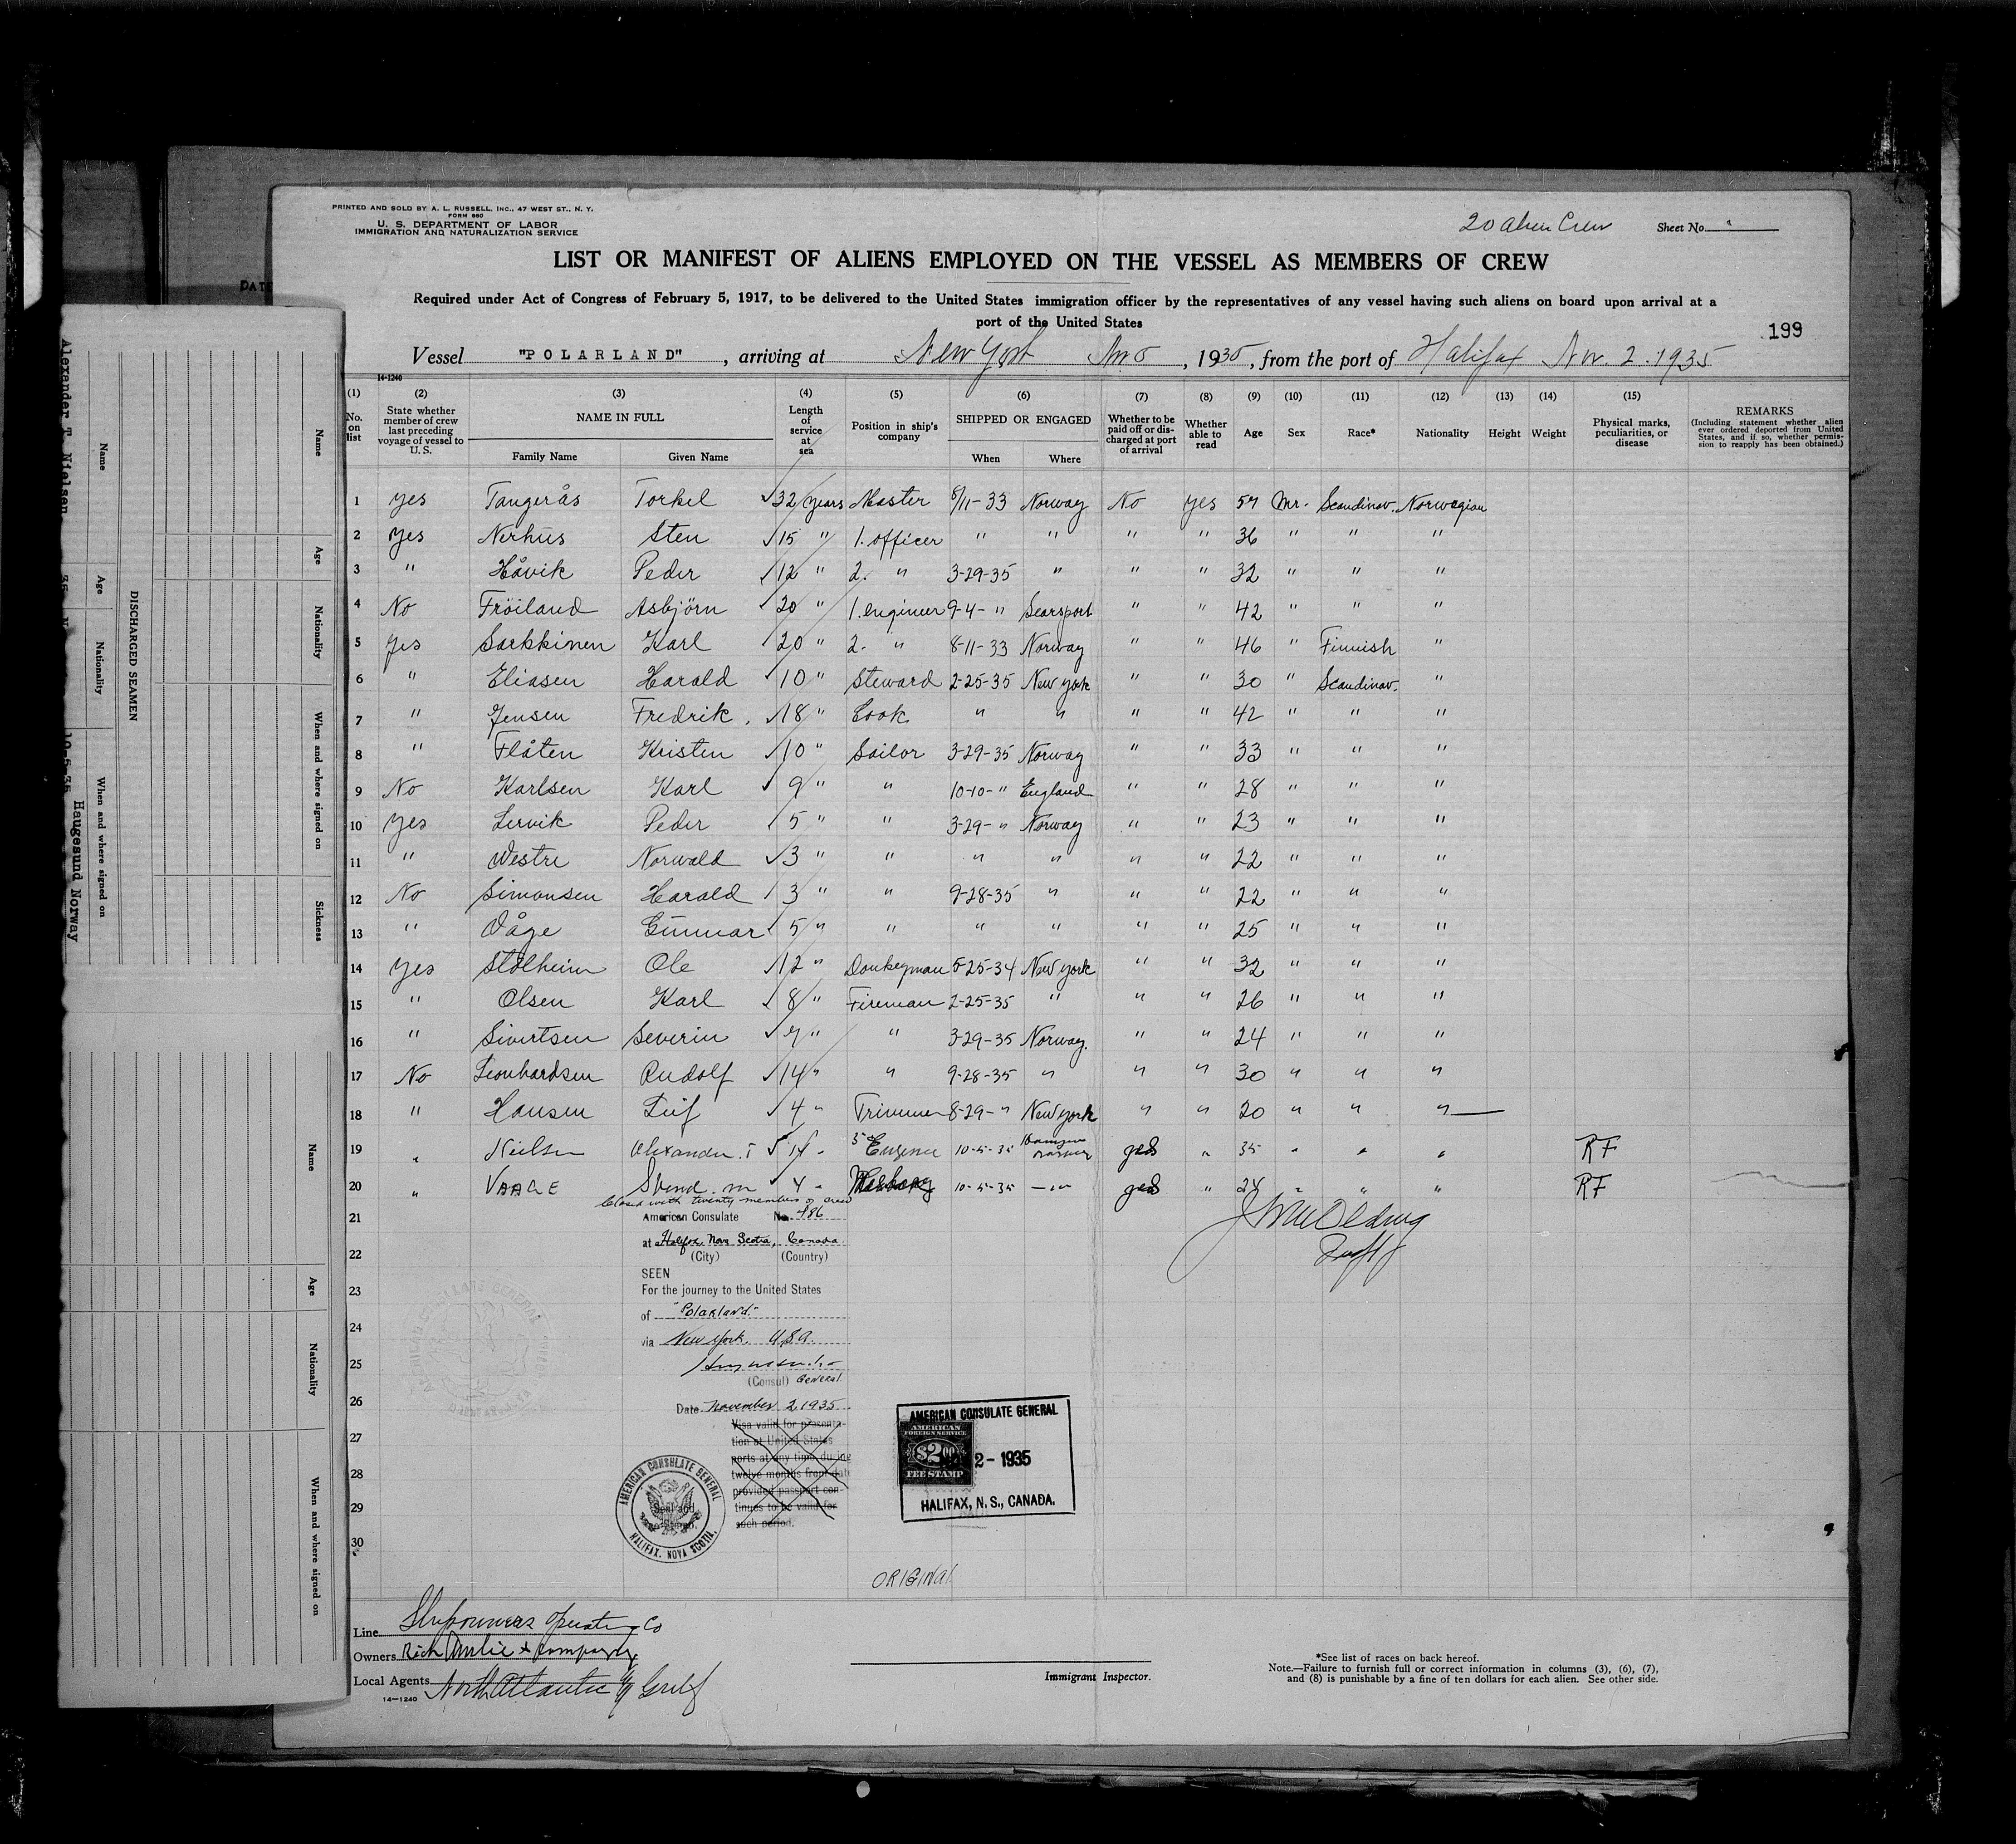 PRINTED AND SOLD BY A. L. RUSSELL, INC., 47 WEST ST., N. Y.
FORM 660
U. S. DEPARTMENT OF LABOR
IMMIGRATION AND NATURALIZATION SERVICE
20 Alien Crew
Sheet No.
LIST OR MANIFEST OF ALIENS EMPLOYED ON THE VESSEL AS MEMBERS OF CREW
Required under Act of Congress of February 5, 1917, to be delivered to the United States immigration officer by the representatives of any vessel having such aliens on board upon arrival at a
port of the United States
199
Vessel "POLARLAND", arriving at New York Nov 5, 1935, from the port of Halifax Nov. 2. 1935
14-1240
(1) No. on list
(2) State whether member of crew last preceding voyage of vessel to U. S.
(3) NAME IN FULL
Family Name Given Name
(4) Length of service at sea
(5) Position in ship's company
(6) SHIPPED OR ENGAGED
When Where
(7) Whether to be paid off or discharged at port of arrival
(8) Whether able to read
(9) Age
(10) Sex
(11) Race*
(12) Nationality
(13) Height
(14) Weight
(15) Physical marks, peculiarities, or disease
REMARKS
(Including statement whether alien ever ordered deported from United States, and if so, whether permission to reapply has been obtained.)
1 Yes Tangerås Torkel 32 years Master 8/11-33 Norway No Yes 57 Mr. Scandinav. Norwegian
2 Yes Nerhus Sten 15 " 1. officer " " " " 36 " " "
3 " Håvik Peder 12 " 2. " 3-29-35 " " " 32 " " "
4 No Fröiland Asbjörn 20 " 1. engineer 9-4- " Searsport " " 42 " " "
5 Yes Sarkkinen Karl 20 " 2. " 8-11-33 Norway " " 46 " Finnish "
6 " Eliasen Harald 10 " Steward 2-25-35 New York " " 30 " Scandinav. "
7 " Jensen Fredrik. 18 " Cook " " " " 42 " " "
8 " Flåten Kristen 10 " Sailor 3-29-35 Norway " " 33 " " "
9 No Karlsen Karl 9 " " 10-10- " England " " 28 " " "
10 Yes Lervik Peder 5 " " 3-29- " Norway " " 23 " " "
11 " Westre Norwald 3 " " " " " " 22 " " "
12 No Simonsen Harald 3 " " 9-28-35 " " " 22 " " "
13 " Våge Gunnar 5 " " " " " " 25 " " "
14 Yes Stölheim Ole 12 " Donkeyman 5-25-34 New York " " 32 " " "
15 " Olsen Karl 8 " Fireman 2-25-35 " " " 26 " " "
16 " Sivertsen Severin 7 " " 3-29-35 Norway. " " 24 " " "
17 No Leonhardsen Rudolf 14 " " 9-28-35 " " " 30 " " "
18 " Hansen Leif 4 " Trimmer 8-29- " New York " " 20 " " "
19 " Nielsen Alexander. T 14 " 10-5-35 " 35 " " " RF
20 " VAAGE Svend. M 4 " 10-5-35 " 24 " " " RF
Closed with twenty members of crew
21
American Consulate No. 486
at Halifax, Nova Scotia, Canada.
22
(City) (Country)
SEEN
23
For the journey to the United States
of "Polarland."
24
via New York, U.S.A.
25
(Consul) General
26
Date November 2, 1935
Visa valid for presenta-
27
tion at United States
ports at any time during
28
twelve months from date
provided passport con-
29
tinues to be valid for
such period.
30
AMERICAN CONSULATE GENERAL
HALIFAX, NOVA SCOTIA.
AMERICAN CONSULATE GENERAL
AMERICAN
FOREIGN SERVICE
$2.00
FEE STAMP
2 - 1935
HALIFAX, N. S., CANADA.
ORIGINAL
Line Shipowners Operating Co
Owners Rich Amlie & Company
Local Agents North Atlantic & Gulf
14-1240
Immigrant Inspector.
*See list of races on back hereof.
Note.—Failure to furnish full or correct information in columns (3), (6), (7),
and (8) is punishable by a fine of ten dollars for each alien. See other side.
DATE
DISCHARGED SEAMEN
Name Age Nationality When and where signed on
Alexander T. Nielsen 35 10-5-35 Haugesund Norway
Name Age Nationality When and where signed on Sickness
Name Age Nationality When and where signed on